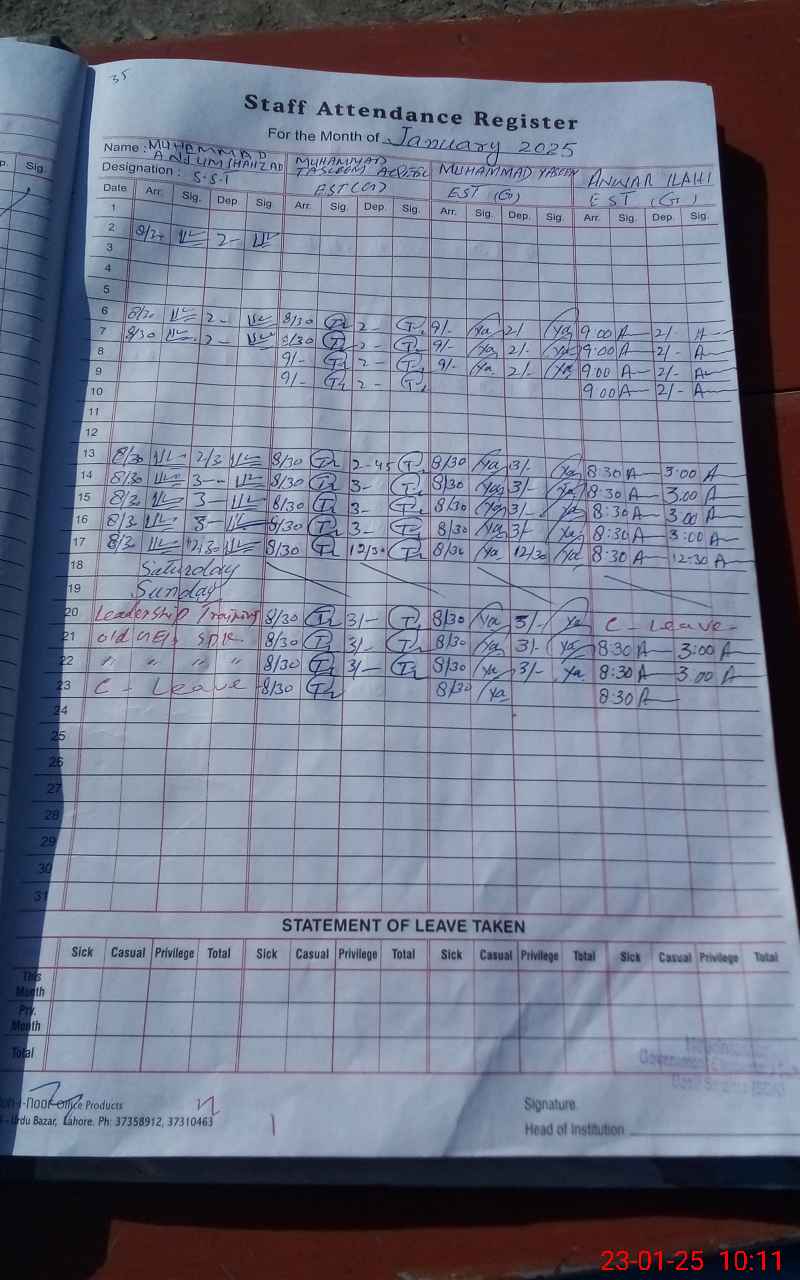 35
Staff Attendance Register
For the Month of January 2025
Name : MUHAMMAD ANJUM SHAHZAD MUHAMMAD TASLEEM MUHAMMAD YASEEN ANWAR ILAHI
Designation : S.S.T EST (G) EST (G) EST (G)
Date Arr. Sig. Dep. Sig. Arr. Sig. Dep. Sig. Arr. Sig. Dep. Sig. Arr. Sig. Dep. Sig.
1
2 8/30 2-
3
4
5
6 8/30 2- 8/30 2- 9/- Ya 2/- Ya 9:00 A 2/- A
7 8/30 2- 8/30 2- 9/- Ya 2/- Ya 9:00 A 2/- A
8 9/- 2- 9/- Ya 2/- Ya 9:00 A 2/- A
9 9/- 2- 9:00 A 2/- A
10
11
12
13 8/30 2/3 8/30 2-45 8/30 Ya 3/- Ya 8:30 A 3:00 A
14 8/30 3- 8/30 3- 8/30 Ya 3/- Ya 8:30 A 3:00 A
15 8/30 3- 8/30 3- 8/30 Ya 3/- Ya 8:30 A 3:00 A
16 8/30 3- 8/30 3- 8/30 Ya 3/- Ya 8:30 A 3:00 A
17 8/30 12/30 8/30 12/30 8/30 Ya 12/30 Ya 8:30 A 12:30 A
18 Saturday
19 Sunday
20 Leadership Training 8/30 3/- 8/30 Ya 3/- Ya C - Leave -
21 8/30 3/- 8/30 Ya 3/- Ya 8:30 A 3:00 A
22 " " " " 8/30 3/- 8/30 Ya 3/- Ya 8:30 A 3:00 A
23 C - Leave 8/30 8/30 Ya 8:30 A
24
25
26
27
28
29
30
31
STATEMENT OF LEAVE TAKEN
Sick Casual Privilege Total Sick Casual Privilege Total Sick Casual Privilege Total Sick Casual Privilege Total
This Month
Prv. Month
Total
Office Products
Urdu Bazar, Lahore. Ph: 37358912, 37310463
Signature
Head of Institution
23-01-25 10:11